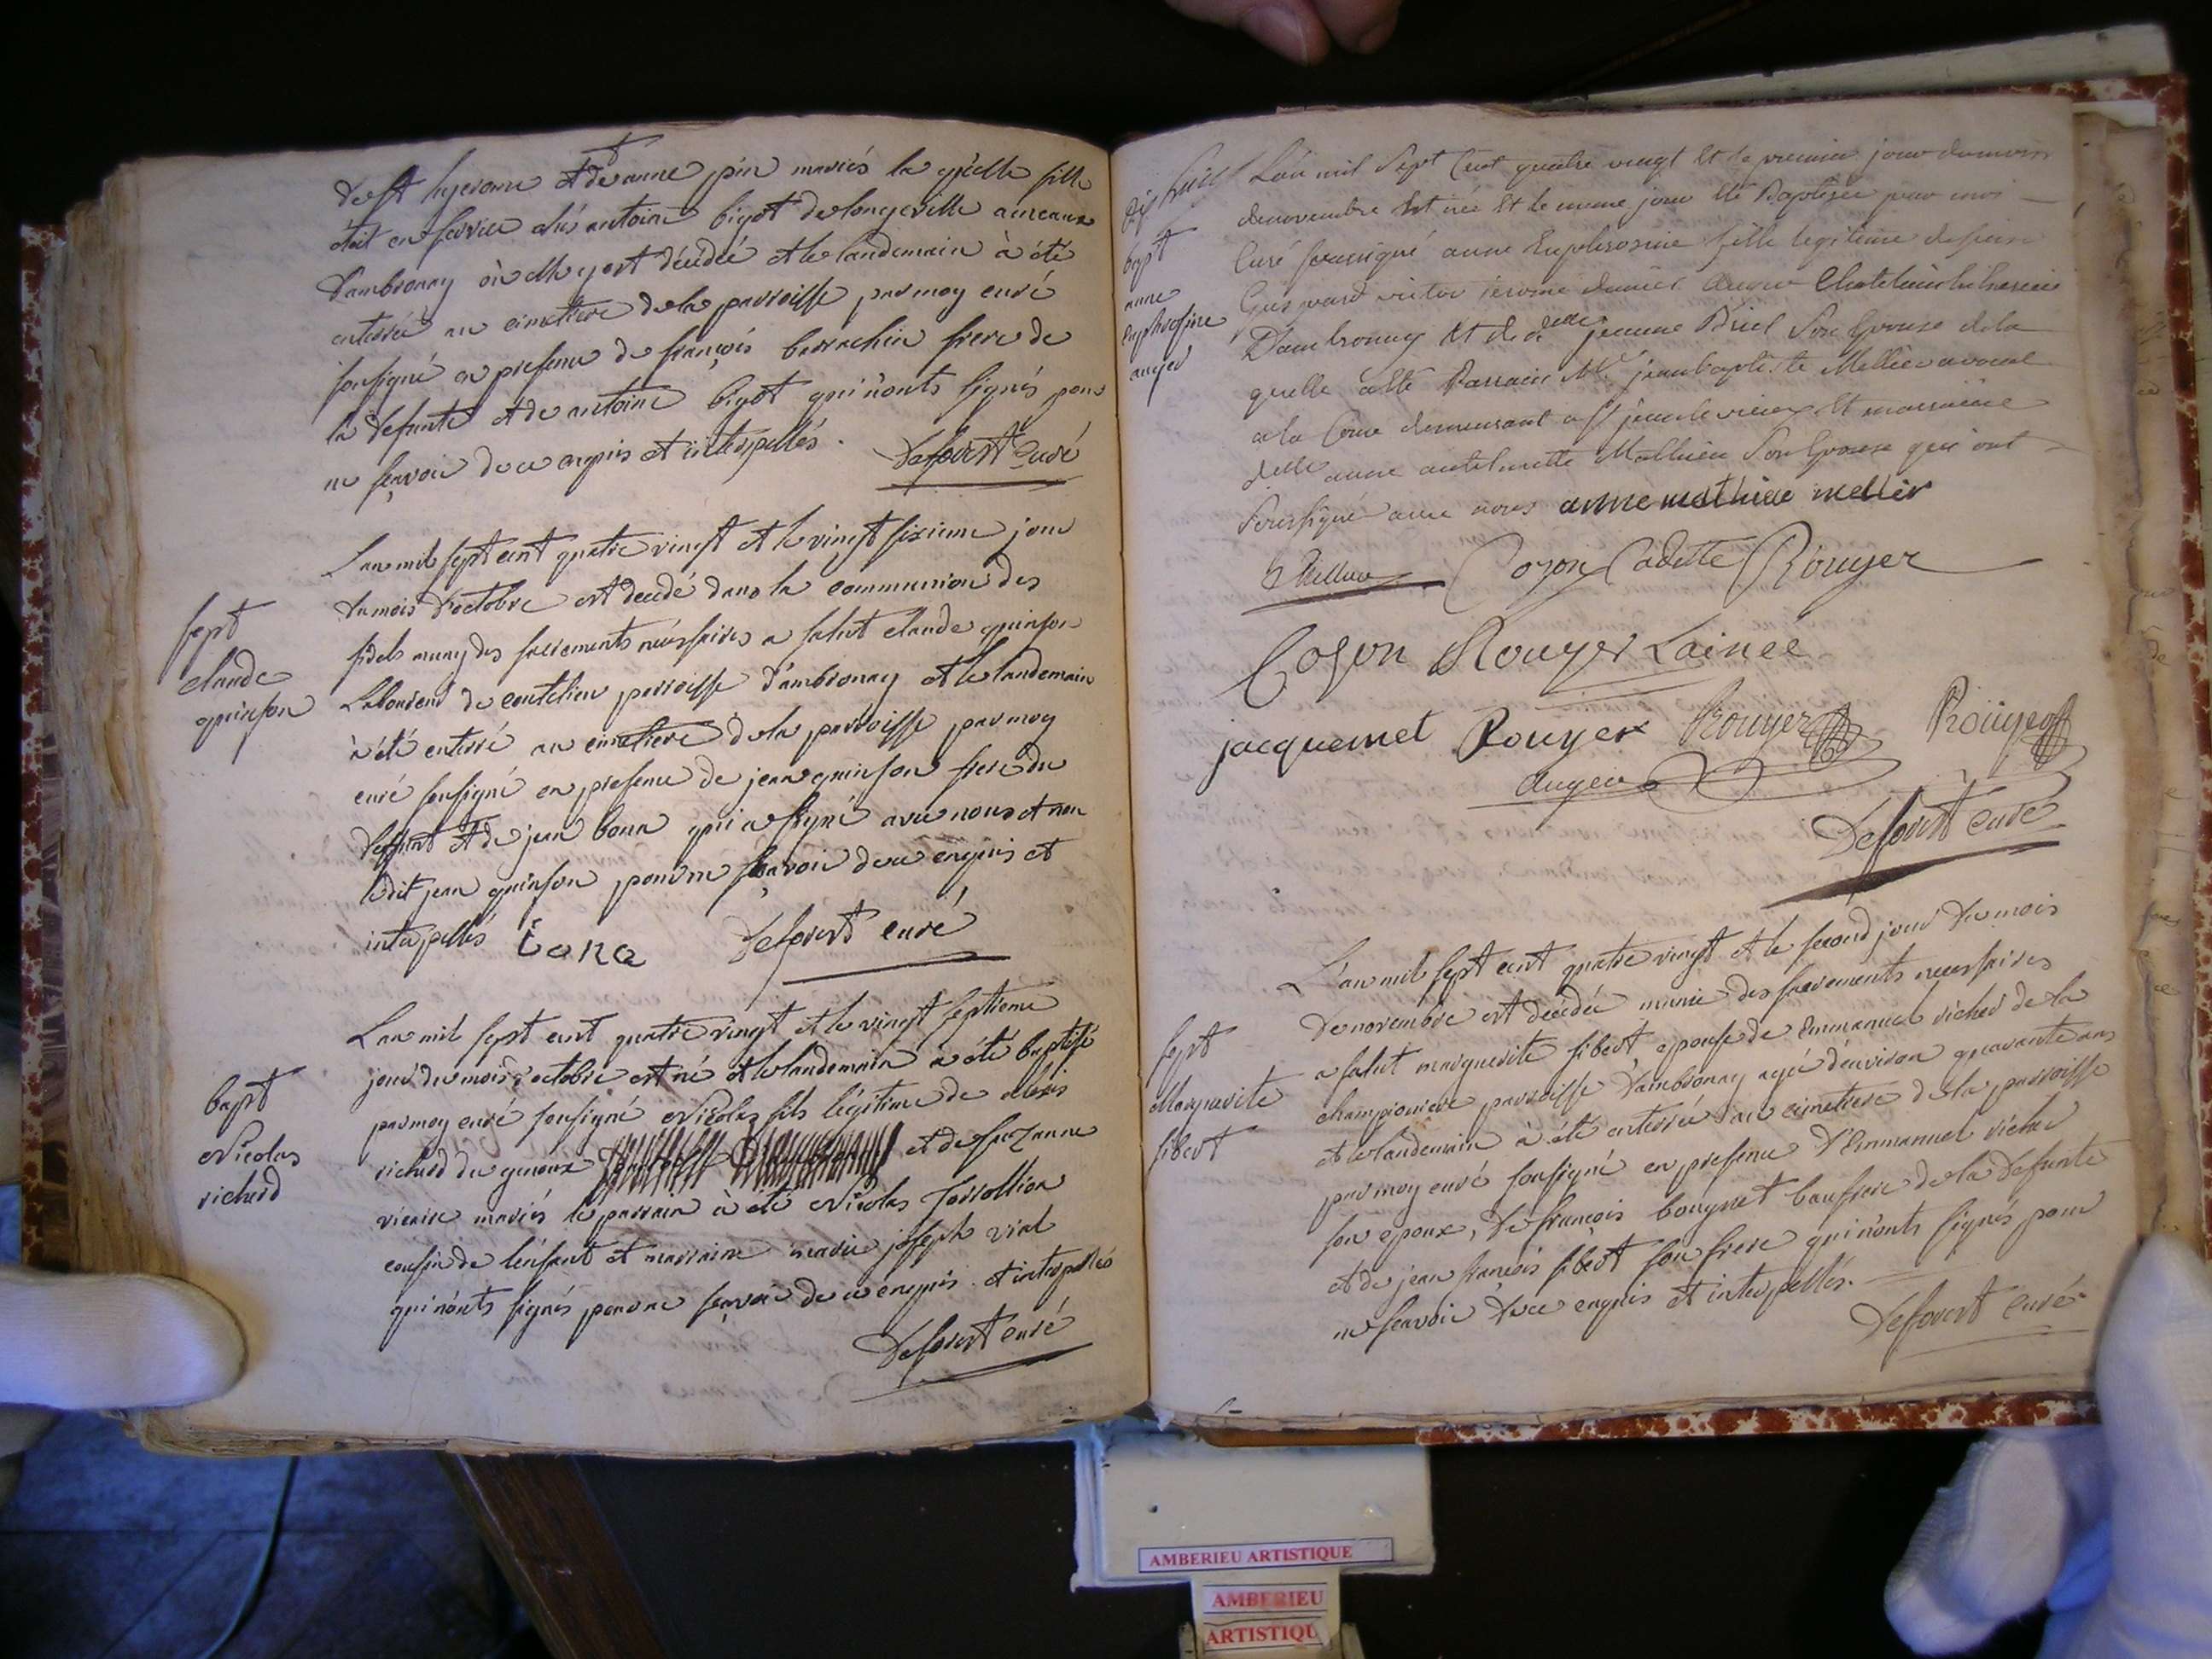 de st hyerome et de anne pin mariés la qu'elle fille
étoit en service chés antoine bigot de longeville
d'ambronay où elle y est décédée et le landemain à été
enterrée au cimetiere de la parroisse par moy curé
sousigné en presence de françois barrachin frere de
la defunte et de antoine bigot qui n'onts signés pour
ne sçavoir de ce enquis et interpellés. Deforest curé
sept
claude
quinson
L'an mil sept cent quatre vingt et le vingt sixieme jour
du mois d'octobre est decédé dans la communion des
fidels muny des sacrements nécessaires a salut claude quinson
Laboureur de coutelieu parroisse d'ambronay et le landemain
à été enterré au cimetiere de la parroisse par moy
curé sousigné en presence de jean quinson frere du
deffunt et de jean bona qui a signé avec nous et non
ledit jean quinson pour ne sçavoir de ce enquis et
interpellés bona Deforest curé
bapt
Nicolas
richerd
L'an mil sept cent quatre vingt et le vingt septieme
jour du mois d'octobre est né et le landemain à été baptisé
par moy curé sousigné Nicolas fils légitime de alexis
richerd du genoux et de suzanne
vicaire mariés le parrain à été Nicolas
cousin de l'enfant et marraine marie joseph vial
qui n'onts signés pour ne sçavoir de ce enquis et interpellés
Deforest curé
bapt
anne
Euphrosine
auger
L'an mil Sept Cent quatre vingt Et le premier jour du mois
de novembre Est née Et le meme jour été Baptisée par moi
Curé soussigné anne Euphrosine fille legitime de sieur
victor jerome
D'ambronay Et de delle jeanne Son Epouse de la
quelle a été Parrain Mr jean baptiste Mellier avocat
a la Cour demeurant a st jean le vieux Et marraine
delle anne antelmette Mathieu Son Epouse qui ont
Soussigné avec nous anne mathieu mellier
Mellier Cozon Cadette Rouyer
Cozon Rouyer Lainée
jacquemet Rouyer Rouyer Roüyer
Auger
Deforest curé
sept
Marguerite
sibert
L'an mil sept cent quatre vingt et le second jour du mois
de novembre est decédée munie des sacrements necessaires
a salut marguerite sibert epouse de Emmanuel richerd de la
championiere parroisse d'ambronay agée d'environ quarante ans
et le landemain à été enterrée au cimetiere de la parroisse
par moy curé sousigné en presence d'Emmanuel richerd
son epoux, de françois bouquet beaufrere de la Defunte
et de jean françois sibert son frere qui n'onts signés pour
ne scavoir de ce enquis et interpellés.
Deforest curé
AMBERIEU ARTISTIQUE
AMBERIEU
ARTISTIQU